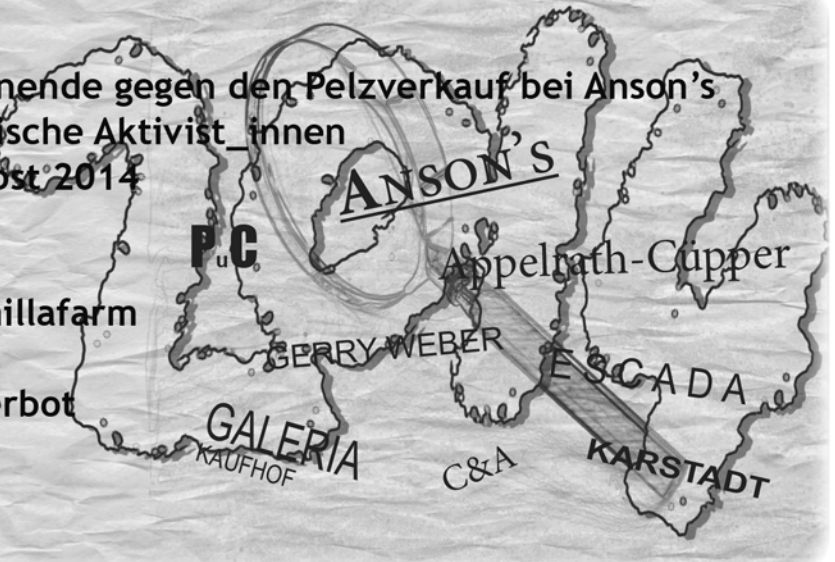 nende gegen den Pelzverkauf bei Anson's
ische Aktivist_innen
ost 2014
ANSON'S
PuC
Appelrath-Cüpper
illafarm
GERRY WEBER
ESCADA
erbot
GALERIA
KAUFHOF
C&A
KARSTADT